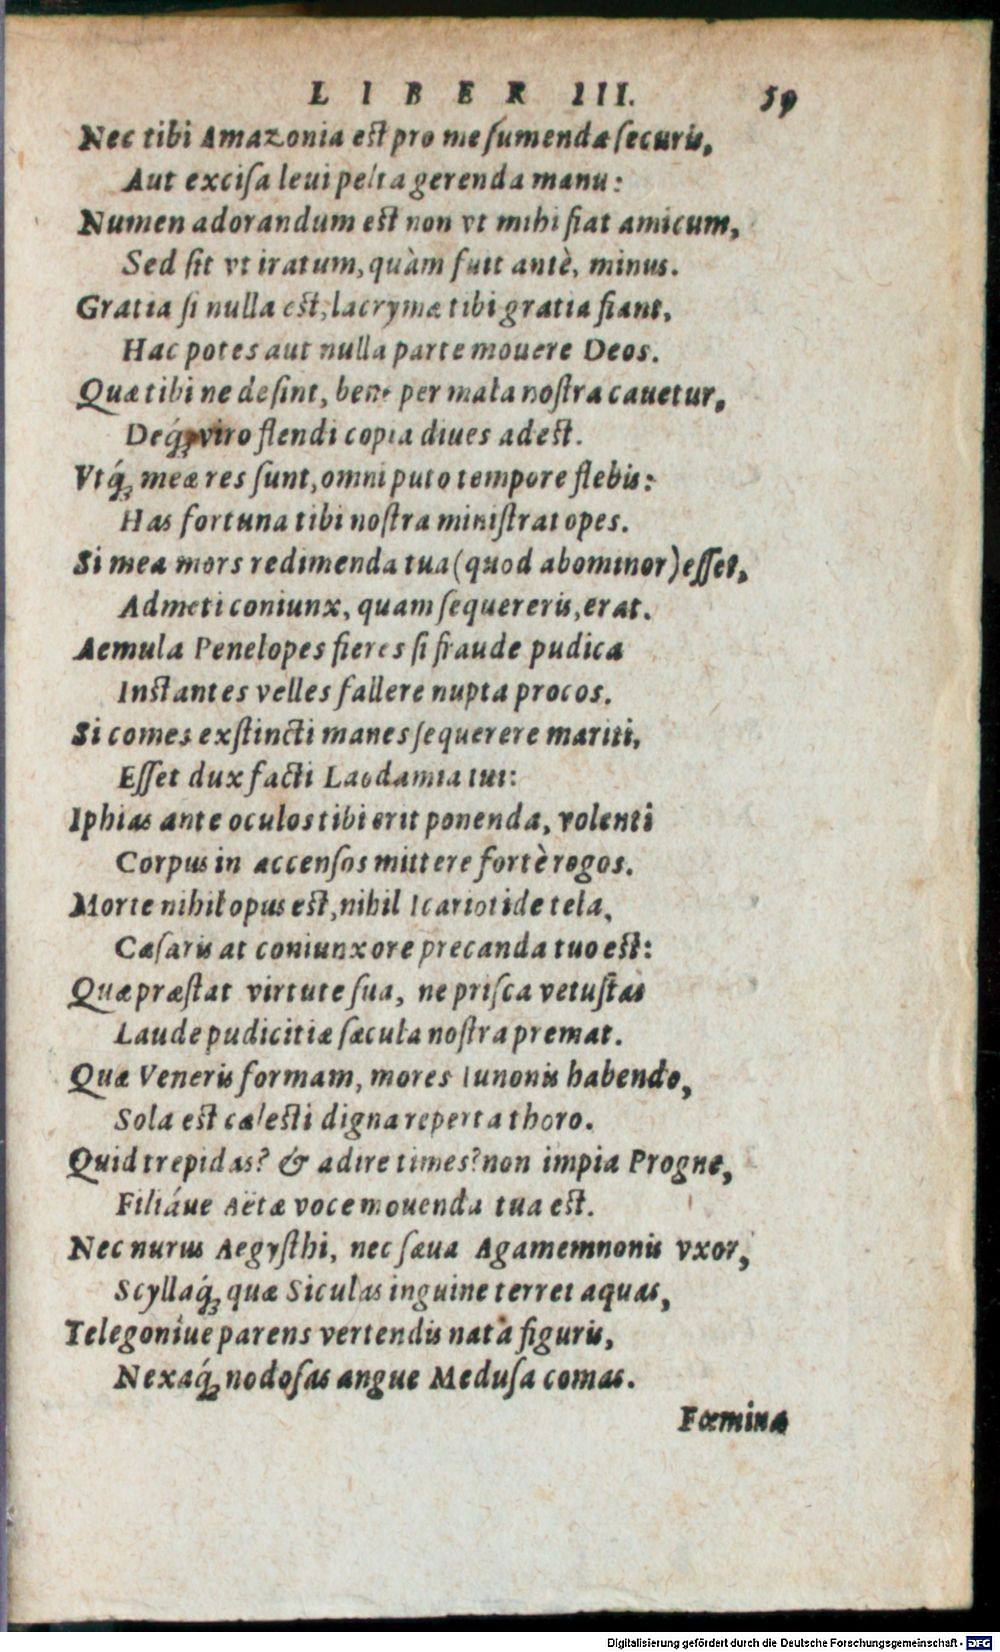 LIBER III. 59
Nec tibi Amazonia est pro me ſumenda ſecuris,
Aut exciſa leui pelta gerenda manu:
Numen adorandum est non vt mihi fiat amicum,
Sed ſit vt iratum, quàm fuit antè, minus.
Gratia ſi nulla est, lacrymæ tibi gratia fiant,
Hac potes aut nulla parte mouere Deos.
Quæ tibi ne deſint, bene per mala noſtra cauetur,
Deq́ue viro flendi copia diues adest.
Vtq́ue meæ res ſunt, omni puto tempore flebis:
Has fortuna tibi noſtra miniſtrat opes.
Si mea mors redimenda tua (quod abominor) eſſet,
Admeti coniunx, quam ſequereris, erat.
Aemula Penelopes fieres ſi fraude pudica
Instantes velles fallere nupta procos.
Si comes exſtincti manes ſequerere mariti,
Eſſet dux facti Laodamia tui:
Iphias ante oculos tibi erit ponenda, volenti
Corpus in accenſos mittere fortè rogos.
Morte nihil opus est, nihil Icariotide tela,
Cæſaris at coniunx ore precanda tuo est:
Quæ præſtat virtute ſua, ne priſca vetuſtas
Laude pudicitiæ ſæcula noſtra premat.
Quæ Veneris formam, mores Iunonis habendo,
Sola est cæleſti digna reperta thoro.
Quid trepidas? & adire times? non impia Progne,
Filiáue Aëtæ voce mouenda tua est.
Nec nurus Aegyſthi, nec ſæua Agamemnonis vxor,
Scyllaq́ue quæ Siculas inguine terret aquas,
Telegoníue parens vertendis nata figuris,
Nexaq́ue nodoſas angue Meduſa comas.
Fœmina
Digitalisierung gefördert durch die Deutsche Forschungsgemeinschaft - DFG